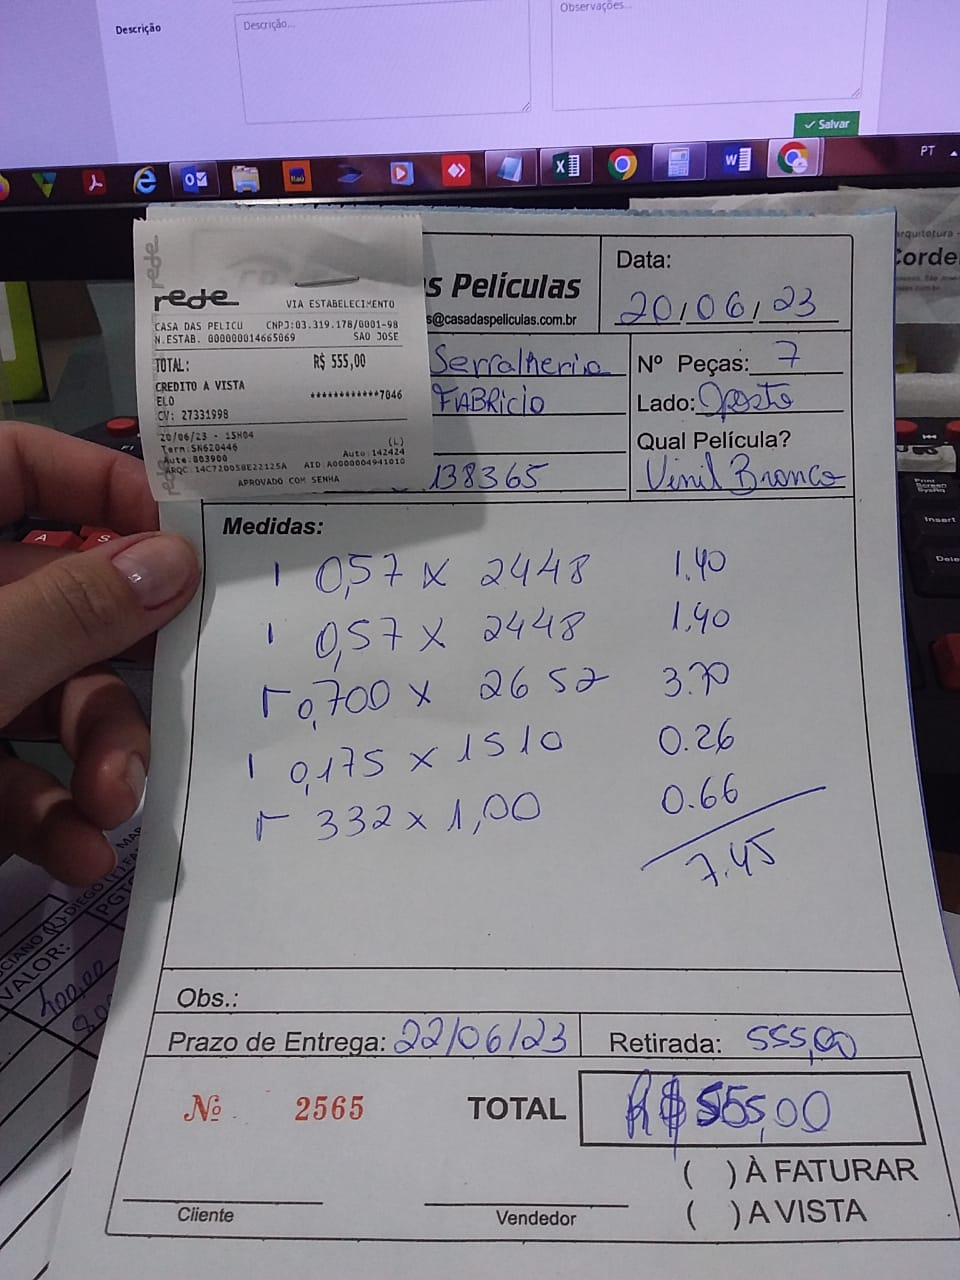 Descrição
Descrição...
Observações...
Salvar
PT
rede
VIA ESTABELECIMENTO
CASA DAS PELICU CNPJ:03.319.178/0001-98
N.ESTAB. 000000014665069 SAO JOSE
TOTAL: R$ 555,00
CREDITO A VISTA
ELO ************7046
CV: 27331998
20/06/23 - 15H04 (L)
Term:SN620446 Auto:142424
Aute:803900
ARQC:14C720058E22125A AID:A0000004941010
APROVADO COM SENHA
s Películas
s@casadaspeliculas.com.br
Data:
20/06/23
Serralheria
FABRICIO
138365
Nº Peças: 7
Lado: Oposto
Qual Película?
Vinil Branco
Medidas:
1 0,57 x 2448 1.40
1 0,57 x 2448 1.40
0,700 x 2652 3.70
1 0,175 x 1510 0.26
332 x 1,00 0.66
7.45
Obs.:
Prazo de Entrega: 22/06/23 Retirada: 555,00
Nº 2565 TOTAL R$ 555,00
( ) À FATURAR
( ) A VISTA
Cliente Vendedor
arquitetura
Corde
Print Screen SysRq
Insert
A S
VALOR: